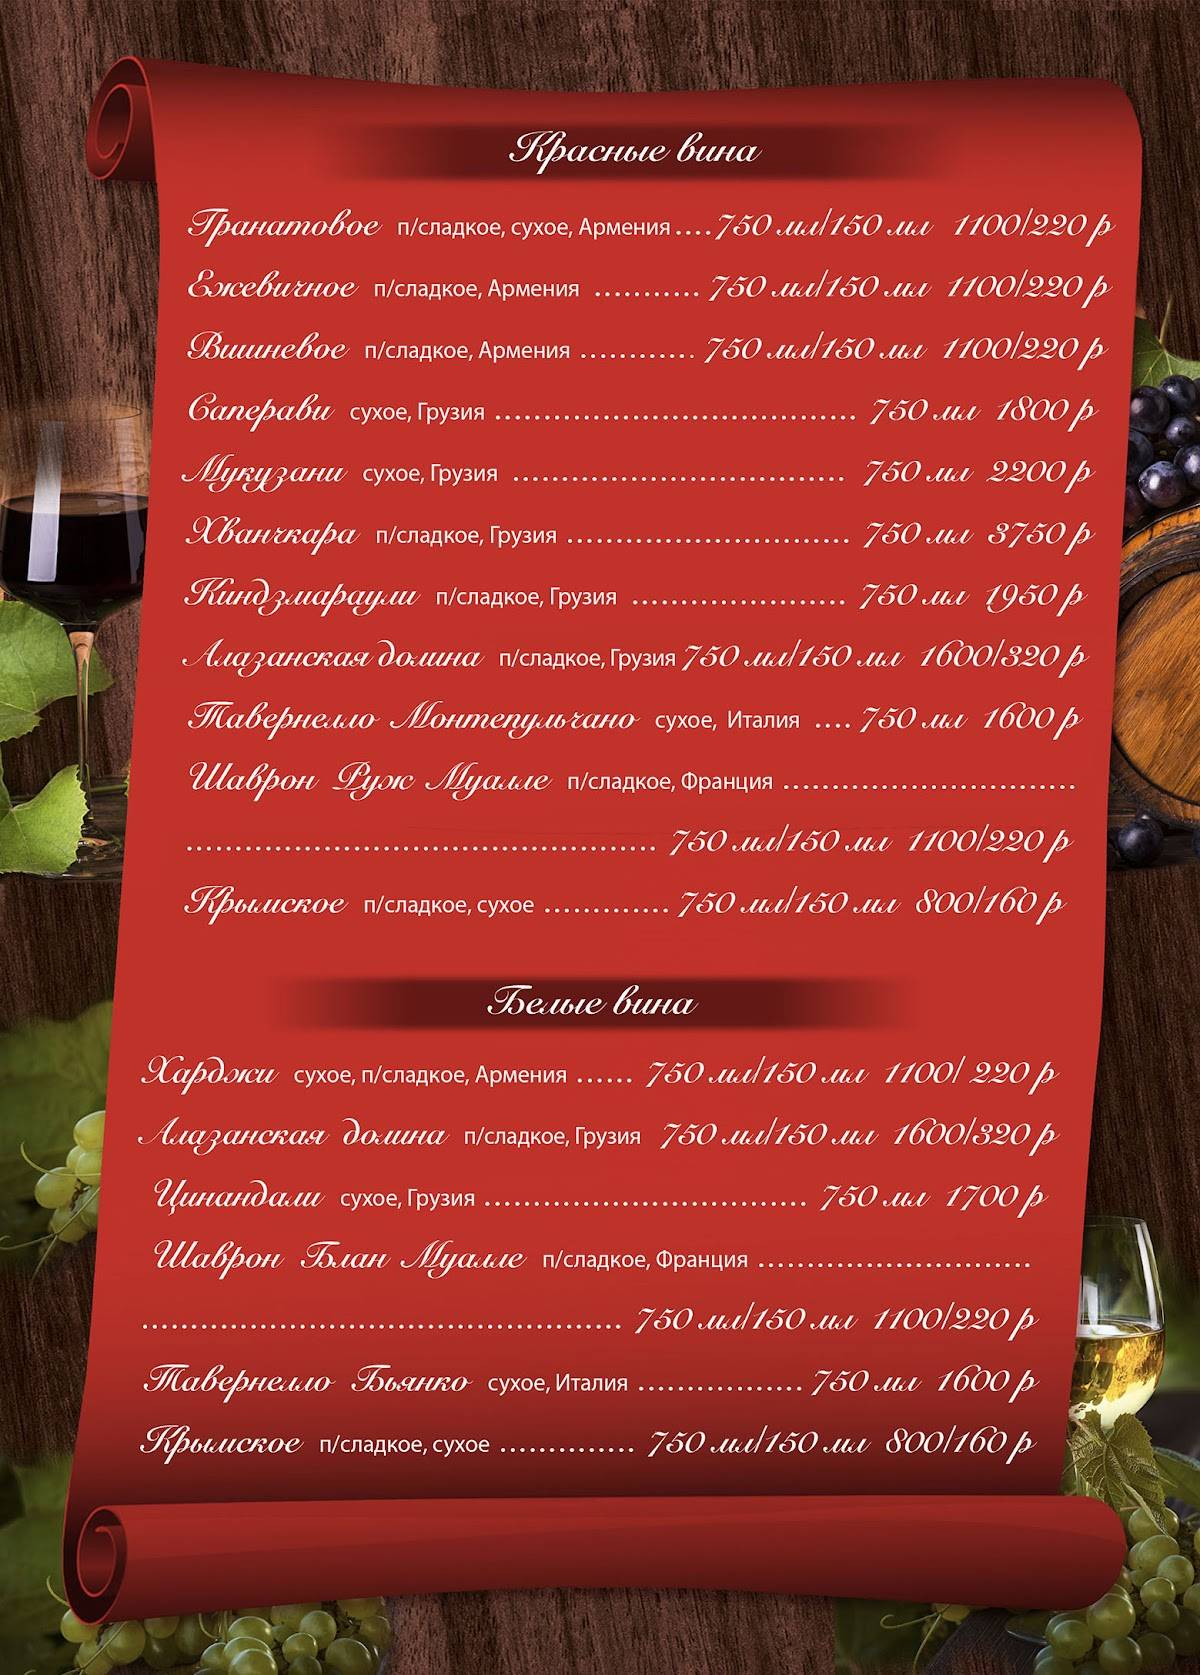 Красные вина
Гранатовое п/сладкое, сухое, Армения....750 мл/150 мл 1100/220 р
Ежевичное п/сладкое, Армения ........... 750 мл/150 мл 1100/220 р
Вишневое п/сладкое, Армения ............ 750 мл/150 мл 1100/220 р
Саперави сухое, Грузия ..................................... 750 мл 1800 р
Мукузани сухое, Грузия .................................. 750 мл 2200 р
Хванчкара п/сладкое, Грузия ............................. 750 мл 3750 р
Киндзмараули п/сладкое, Грузия ...................... 750 мл 1950 р
Алазанская долина п/сладкое, Грузия 750 мл/150 мл 1600/320 р
Тавернелло Монтепульчано сухое, Италия .... 750 мл 1600 р
Шаврон Руж Муалле п/сладкое, Франция ..............................
................................................ 750 мл/150 мл 1100/220 р
Крымское п/сладкое, сухое ............. 750 мл/150 мл 800/160 р
Белые вина
Харджи сухое, п/сладкое, Армения ...... 750 мл/150 мл 1100/ 220 р
Алазанская долина п/сладкое, Грузия 750 мл/150 мл 1600/320 р
Цинандали сухое, Грузия ................................. 750 мл 1700 р
Шаврон Блан Муалле п/сладкое, Франция ............................
................................................. 750 мл/150 мл 1100/220 р
Тавернелло Бьянко сухое, Италия ................. 750 мл 1600 р
Крымское п/сладкое, сухое .............. 750 мл/150 мл 800/160 р